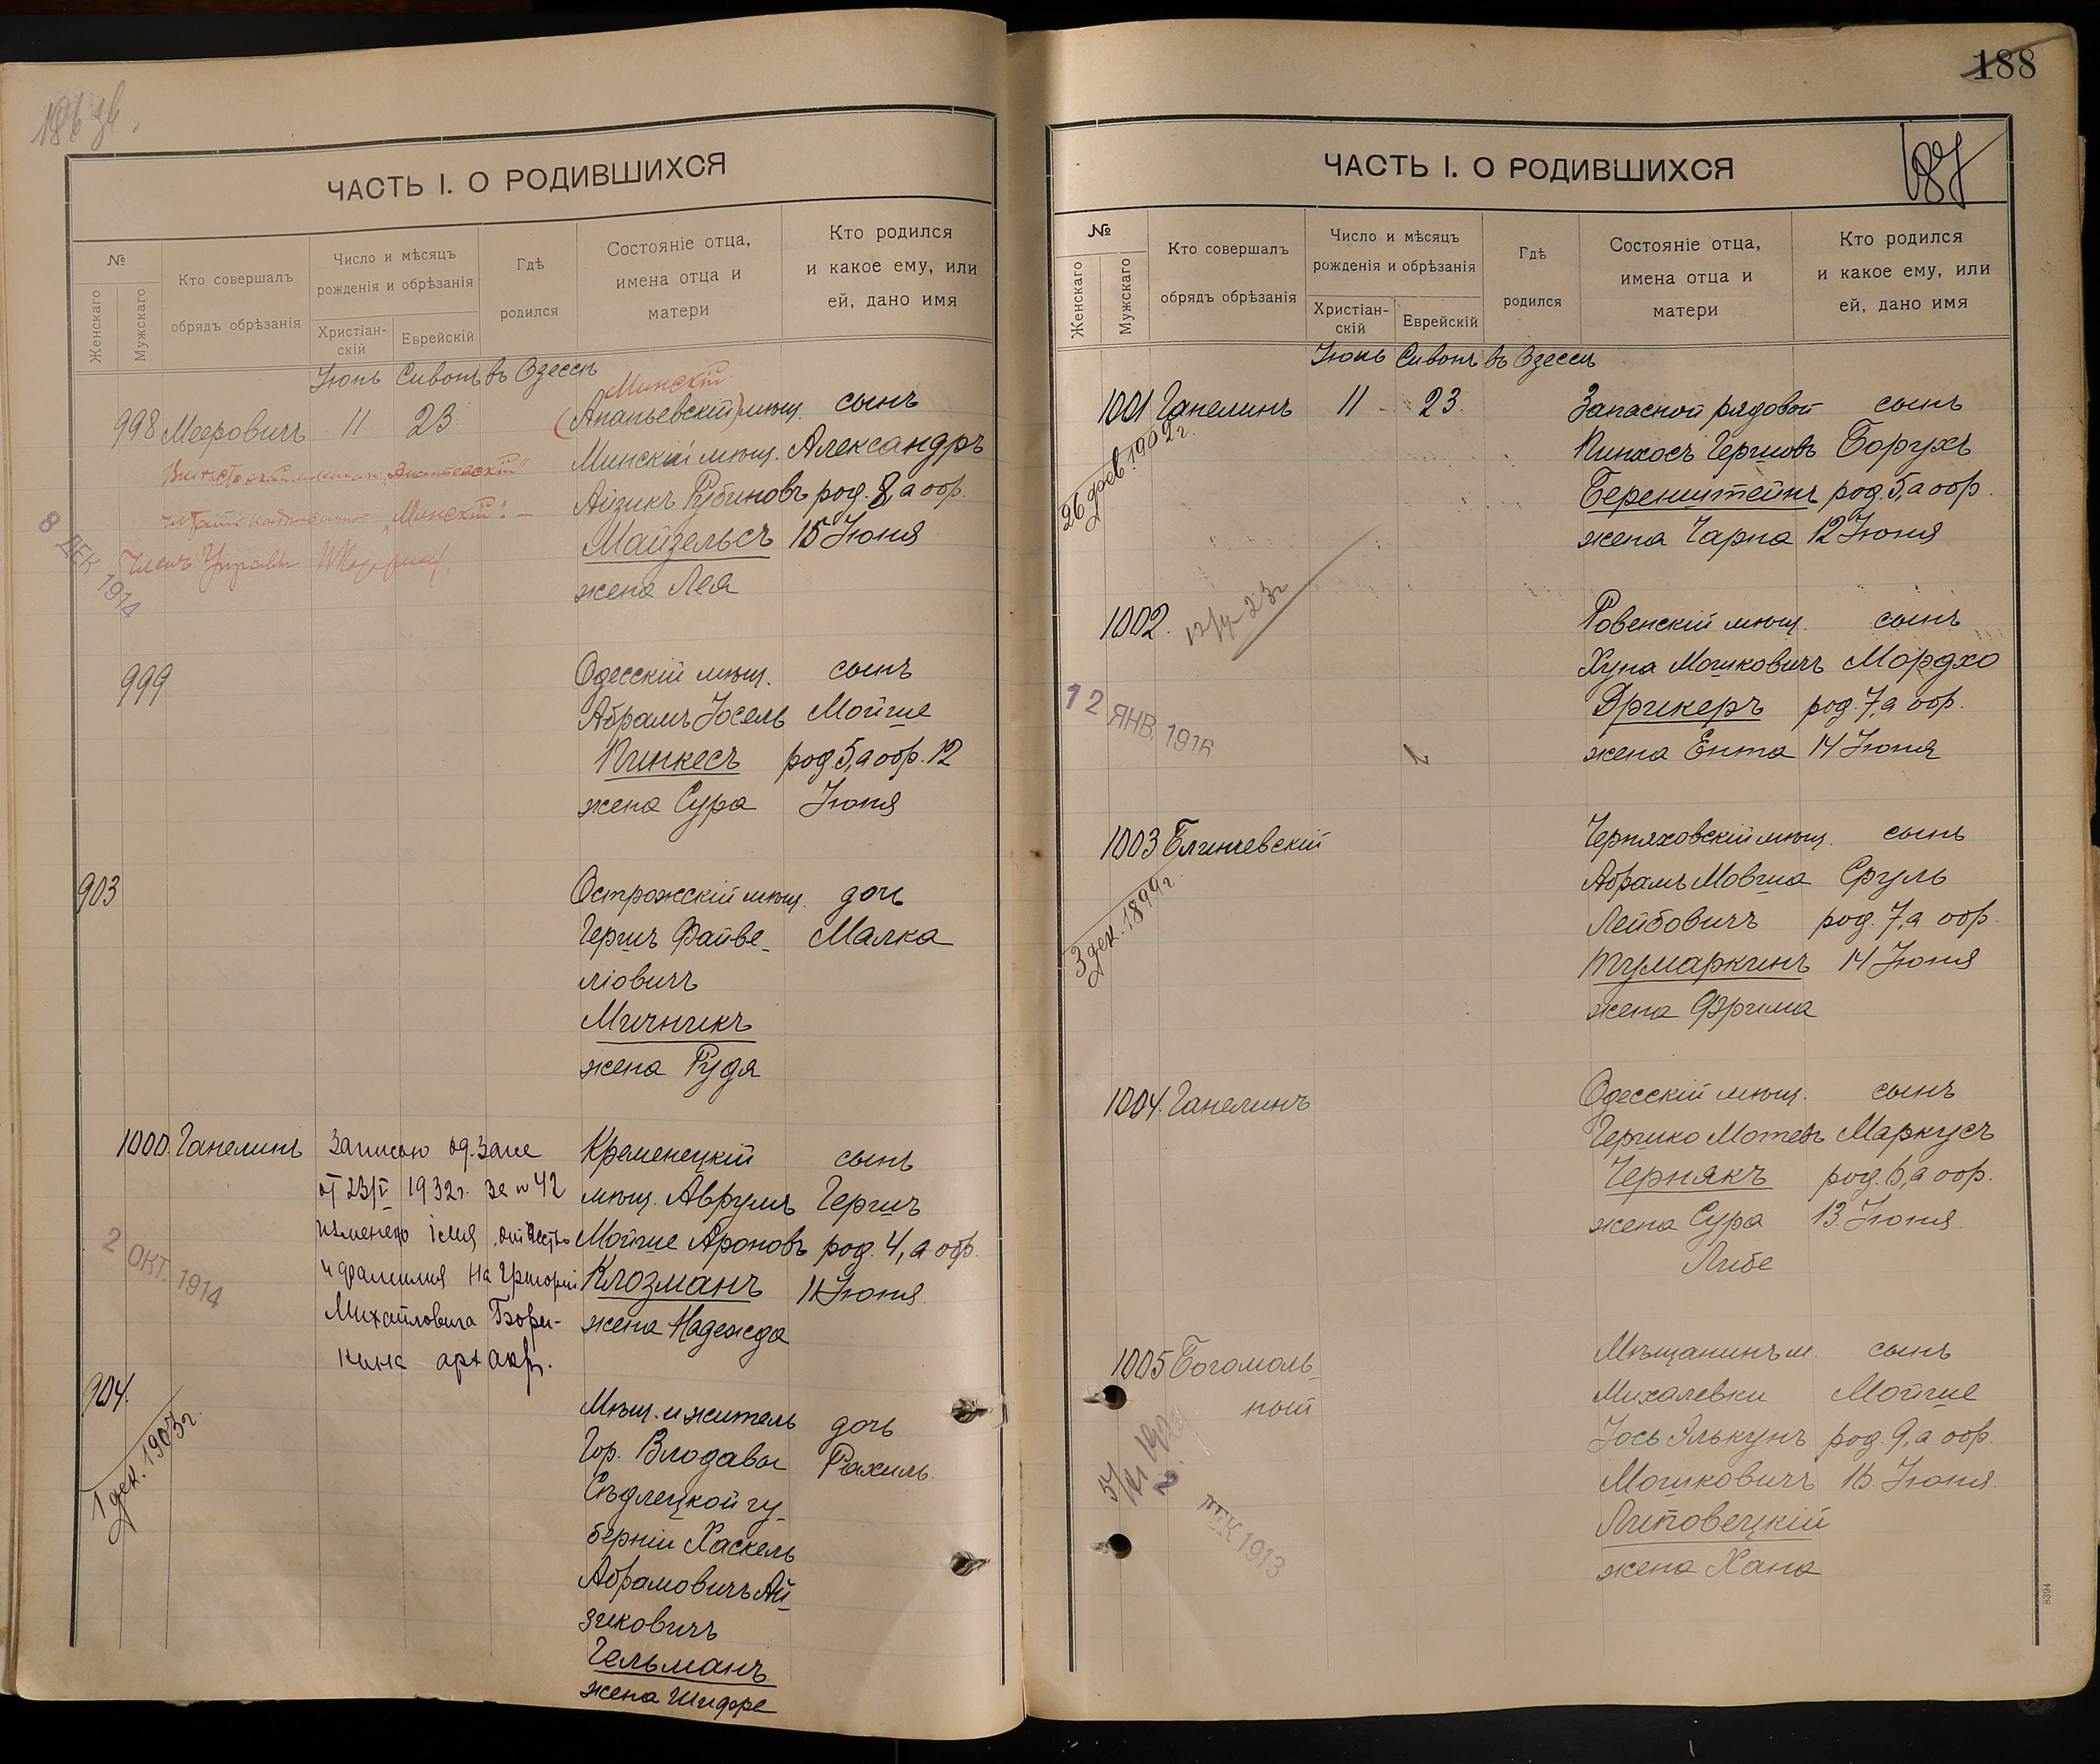 ЧАСТЬ I. О РОДИВШИХСЯ
№
Женскаго
Мужскаго
Кто совершалъ
обрядъ обрѣзанія
Число и мѣсяцъ
рожденія и обрѣзанія
Христіан-
скій
Еврейскій
Гдѣ
родился
Состояніе отца,
имена отца и
матери
Кто родился
и какое ему, или
ей, дано имя
Іюнь Сивонъ въ Одессѣ
Минскій
998 Мееровичъ 11 23 (Ананьевскій) мѣщ. сынъ
Минскій мѣщ. Александръ
Айзикъ Рубиновъ род. 8, а обр.
Майзельсъ 15 Іюня
жена Лея
"Минскій"
Членъ Управы
8 ДЕК 1914
999 Одесскій мѣщ. сынъ
Абрамъ Іосель Мойше
Пинкесъ род. 5, а обр. 12
жена Сура Іюня
903 Острожскій мѣщ. дочь
Гершъ Файве- Малка
ліовичъ
Мичникъ
жена Рудя
1000. Ганелинъ Кременецкій сынъ
мѣщ. Аврумъ Гершъ
Мойше Ароновъ род. 4, а обр.
Клозманъ 11 Іюня
жена Надежда
Записою од. Загсе
от 23/V 1932г. за № 42
изменено імя, отчество
и фамилия на Григорий
Михайловича Бори-
кина
2 ОКТ. 1914
904. Мѣщ. и житель дочь
гор. Влодавы Рахиль
Сѣдлецкой гу-
берніи Хаскель
Абрамовичъ Ай-
зиковичъ
Гельманъ
жена Шифра
1 дек. 1903г.
188
187
ЧАСТЬ I. О РОДИВШИХСЯ
№
Женскаго
Мужскаго
Кто совершалъ
обрядъ обрѣзанія
Число и мѣсяцъ
рожденія и обрѣзанія
Христіан-
скій
Еврейскій
Гдѣ
родился
Состояніе отца,
имена отца и
матери
Кто родился
и какое ему, или
ей, дано имя
Іюнь Сивонъ въ Одессѣ
1001 Ганелинъ 11 23. Запасной рядовой сынъ
Пинхосъ Гершовъ Борухъ
Беренштейнъ род. 5, а обр.
жена Чарна 12 Іюня
26 фев. 1902г.
1002. Ровенскій мѣщ. сынъ
Хуна Мошковичъ Мордхо
Дрикеръ род. 7, а обр.
жена Ента 14 Іюня
12 ЯНВ. 1916
1003 Блинчевскій Черняховскій мѣщ. сынъ
Абрамъ Мовша Сруль
Лейбовичъ род. 7, а обр.
Тумаркинъ 14 Іюня
жена Фрима
3 дек. 1899г.
1004. Ганелинъ Одесскій мѣщ. сынъ
Гершко Мотель Маркусъ
Чернякъ род. 6, а обр.
жена Сура 13 Іюня.
Либе
1005 Богомоль- Мѣщанинъ м. сынъ
ный Михалевки Мойше
Іось Элькунъ род. 9, а обр.
Мошковичъ 15 Іюня.
Липовецкій
жена Хана
1913
8394